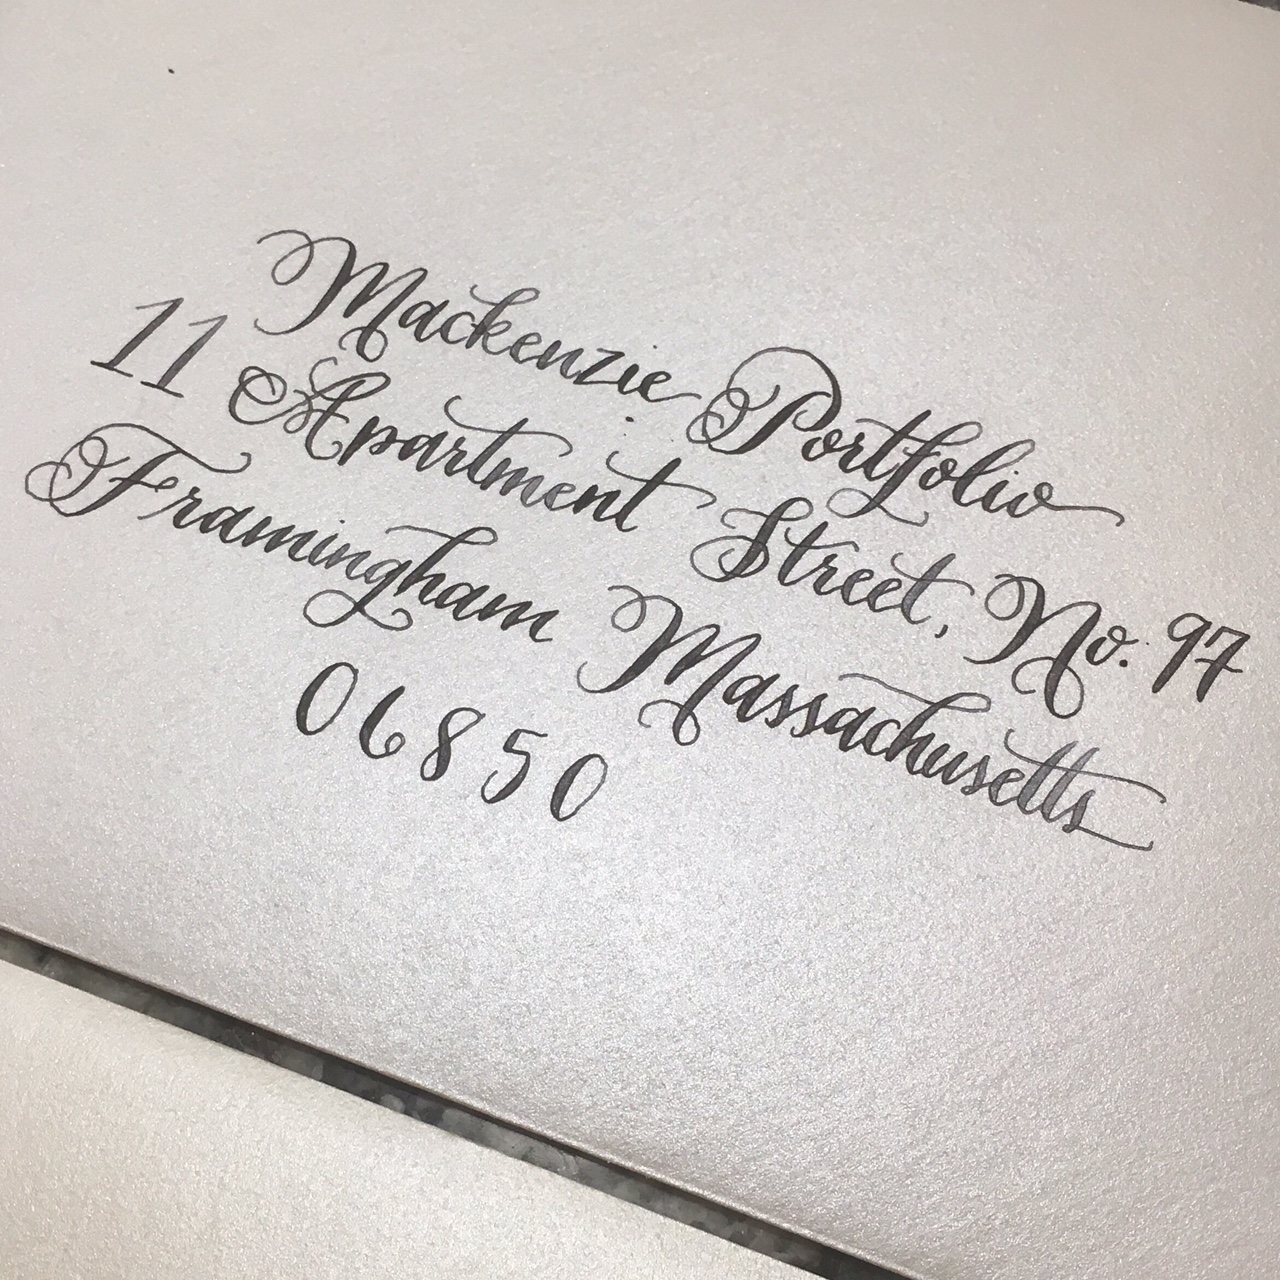 Mackenzie Portfolio
11 Apartment Street, No. 97
Framingham Massachusetts
06850